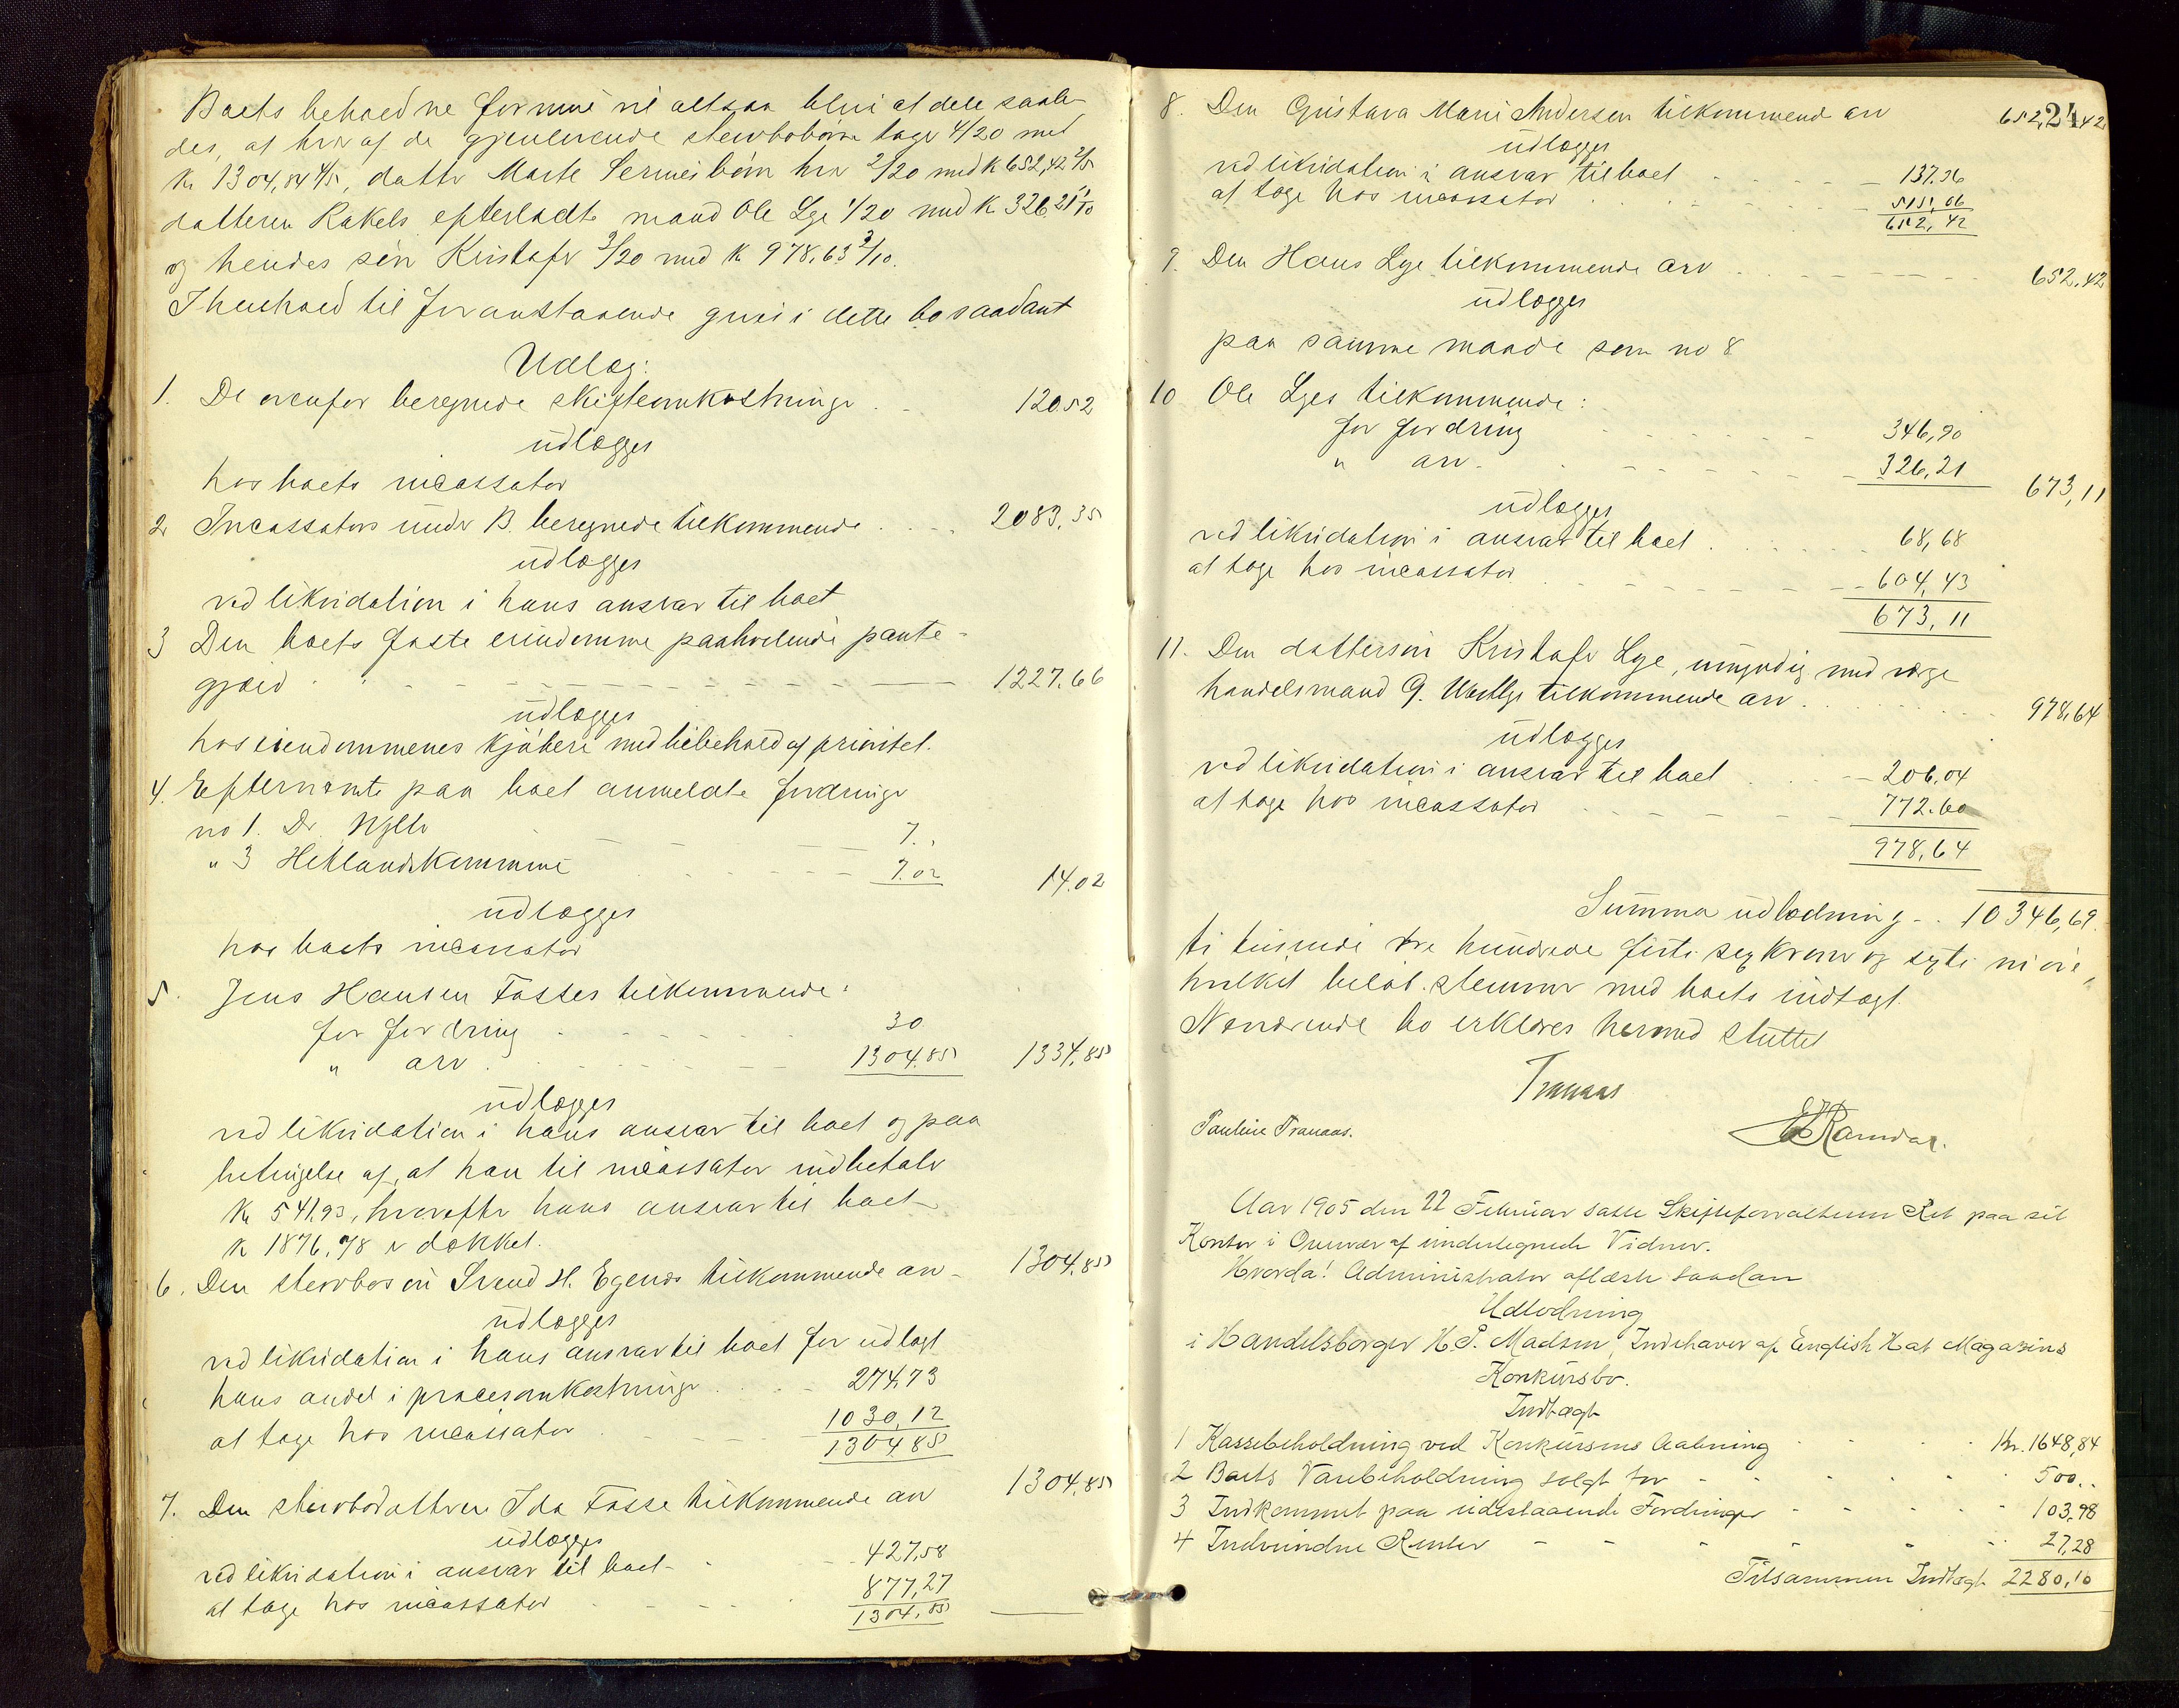 Boets beholdne formue vil altsaa blive at dele saale-
des, at hver af de gjenlevende sterbobørn tager 4/20 med
Kr 1304,84 4/5, datter Marte Serines børn hver 2/20 med K 652,42 2/5
datteren Rakels efterladte mand Ole Lye 1/20 med K 326,21 1/10
og hendes søn Kristofer 3/20 med K 978,63 3/10.
I henhold til foranstaaende gives i dette bo saadant
Udlæg:
1. De ovenfor beregnede skifteomkostninger . . 120.52
udlægges
hos boets incassator
2. Incassators under B. beregnede tilkommende . . . . 2083,35
udlægges
ved likvidation i hans ansvar til boet
3 Den boets faste eiendomme paahvilende pante-
gjæld - - - - 1227.66
udlægges
hos eiendommenes kjøbere med bibehold af prioritet.
4. Efternævnte paa boet anmeldte fordringer
no 1. Dr. 7.
" 3 Hetlands kommune 7.02 14.02
udlægges
hos boets incassator
5. Jens Hansen Fosses tilkommende:
for fordring - - - 30
" arv . . . 1304.85 1334,85
udlægges
ved likvidation i hans ansvar til boet og paa
betingelse af, at han til incassator indbetaler
Kr 541.93, hvorefter hans ansvar til boet
K 1876,78 er dækket.
6. Den sterbosøn Svend H. Egenes tilkommende arv - 1304,85
udlægges
ved likvidation i hans ansvar til boet for udlagt
hans andel i procesomkostninger . . 274,73
at tage hos incassator 1030,12
1304,85
7. Den sterbodatteren Ida Fosse tilkommende arv 1304,85
udlægges
ved likvidation i ansvar til boet - 427,58
at tage hos incassator 877,27
1304,85
24
8. Den Gustava Marie Andersen tilkommende arv 652,42
udlægges
ved likvidation i ansvar til boet 137.36
at tage hos incassator 515,06
652,42
9. Den Hans Lye tilkommende arv 652.42
udlægges
paa samme maade som no 8
10 Ole Lyes tilkommende:
for fordring 346,90
" arv. 326,21 673,11
udlægges
ved likvidation i ansvar til boet 68,68
at tage hos incassator 604,43
673,11
11. Den dattersøn Kristofer Lye, umyndig med værge
handelsmand G. tilkommende arv 978,64
udlægges
ved likvidation i ansvar til boet 206,04
at tage hos incassator 772.60
978,64
Summa udlodning - . 10346,69.
ti tusinde tre hundrede firti sex kroner og sexti ni øre,
hvilket beløb stemmer med boets indtægt.
Nærværende bo erklæres hermed sluttet
Tranaas
Pauline Tranaas. Ramdal.
Aar 1905 den 22 Februar satte Skifteforvalteren Ret paa sit
Kontor i Overvær af undertegnede Vidner.
Hvorda! Administrator aflæste saadan
Udlodning
i Handelsborger H. P. Madsen, Indehaver af English Hat Magazins
Konkursbo.
Indtægt
1 Kassebeholdning ved Konkursens Aabning Kr. 1648,84
2 Boets Varebeholdning solgt for 500..
3 Indkommet paa udestaaende Fordringer 103,98
4 Indvundne Renter 27,28
Tilsammen Indtægt 2280,10